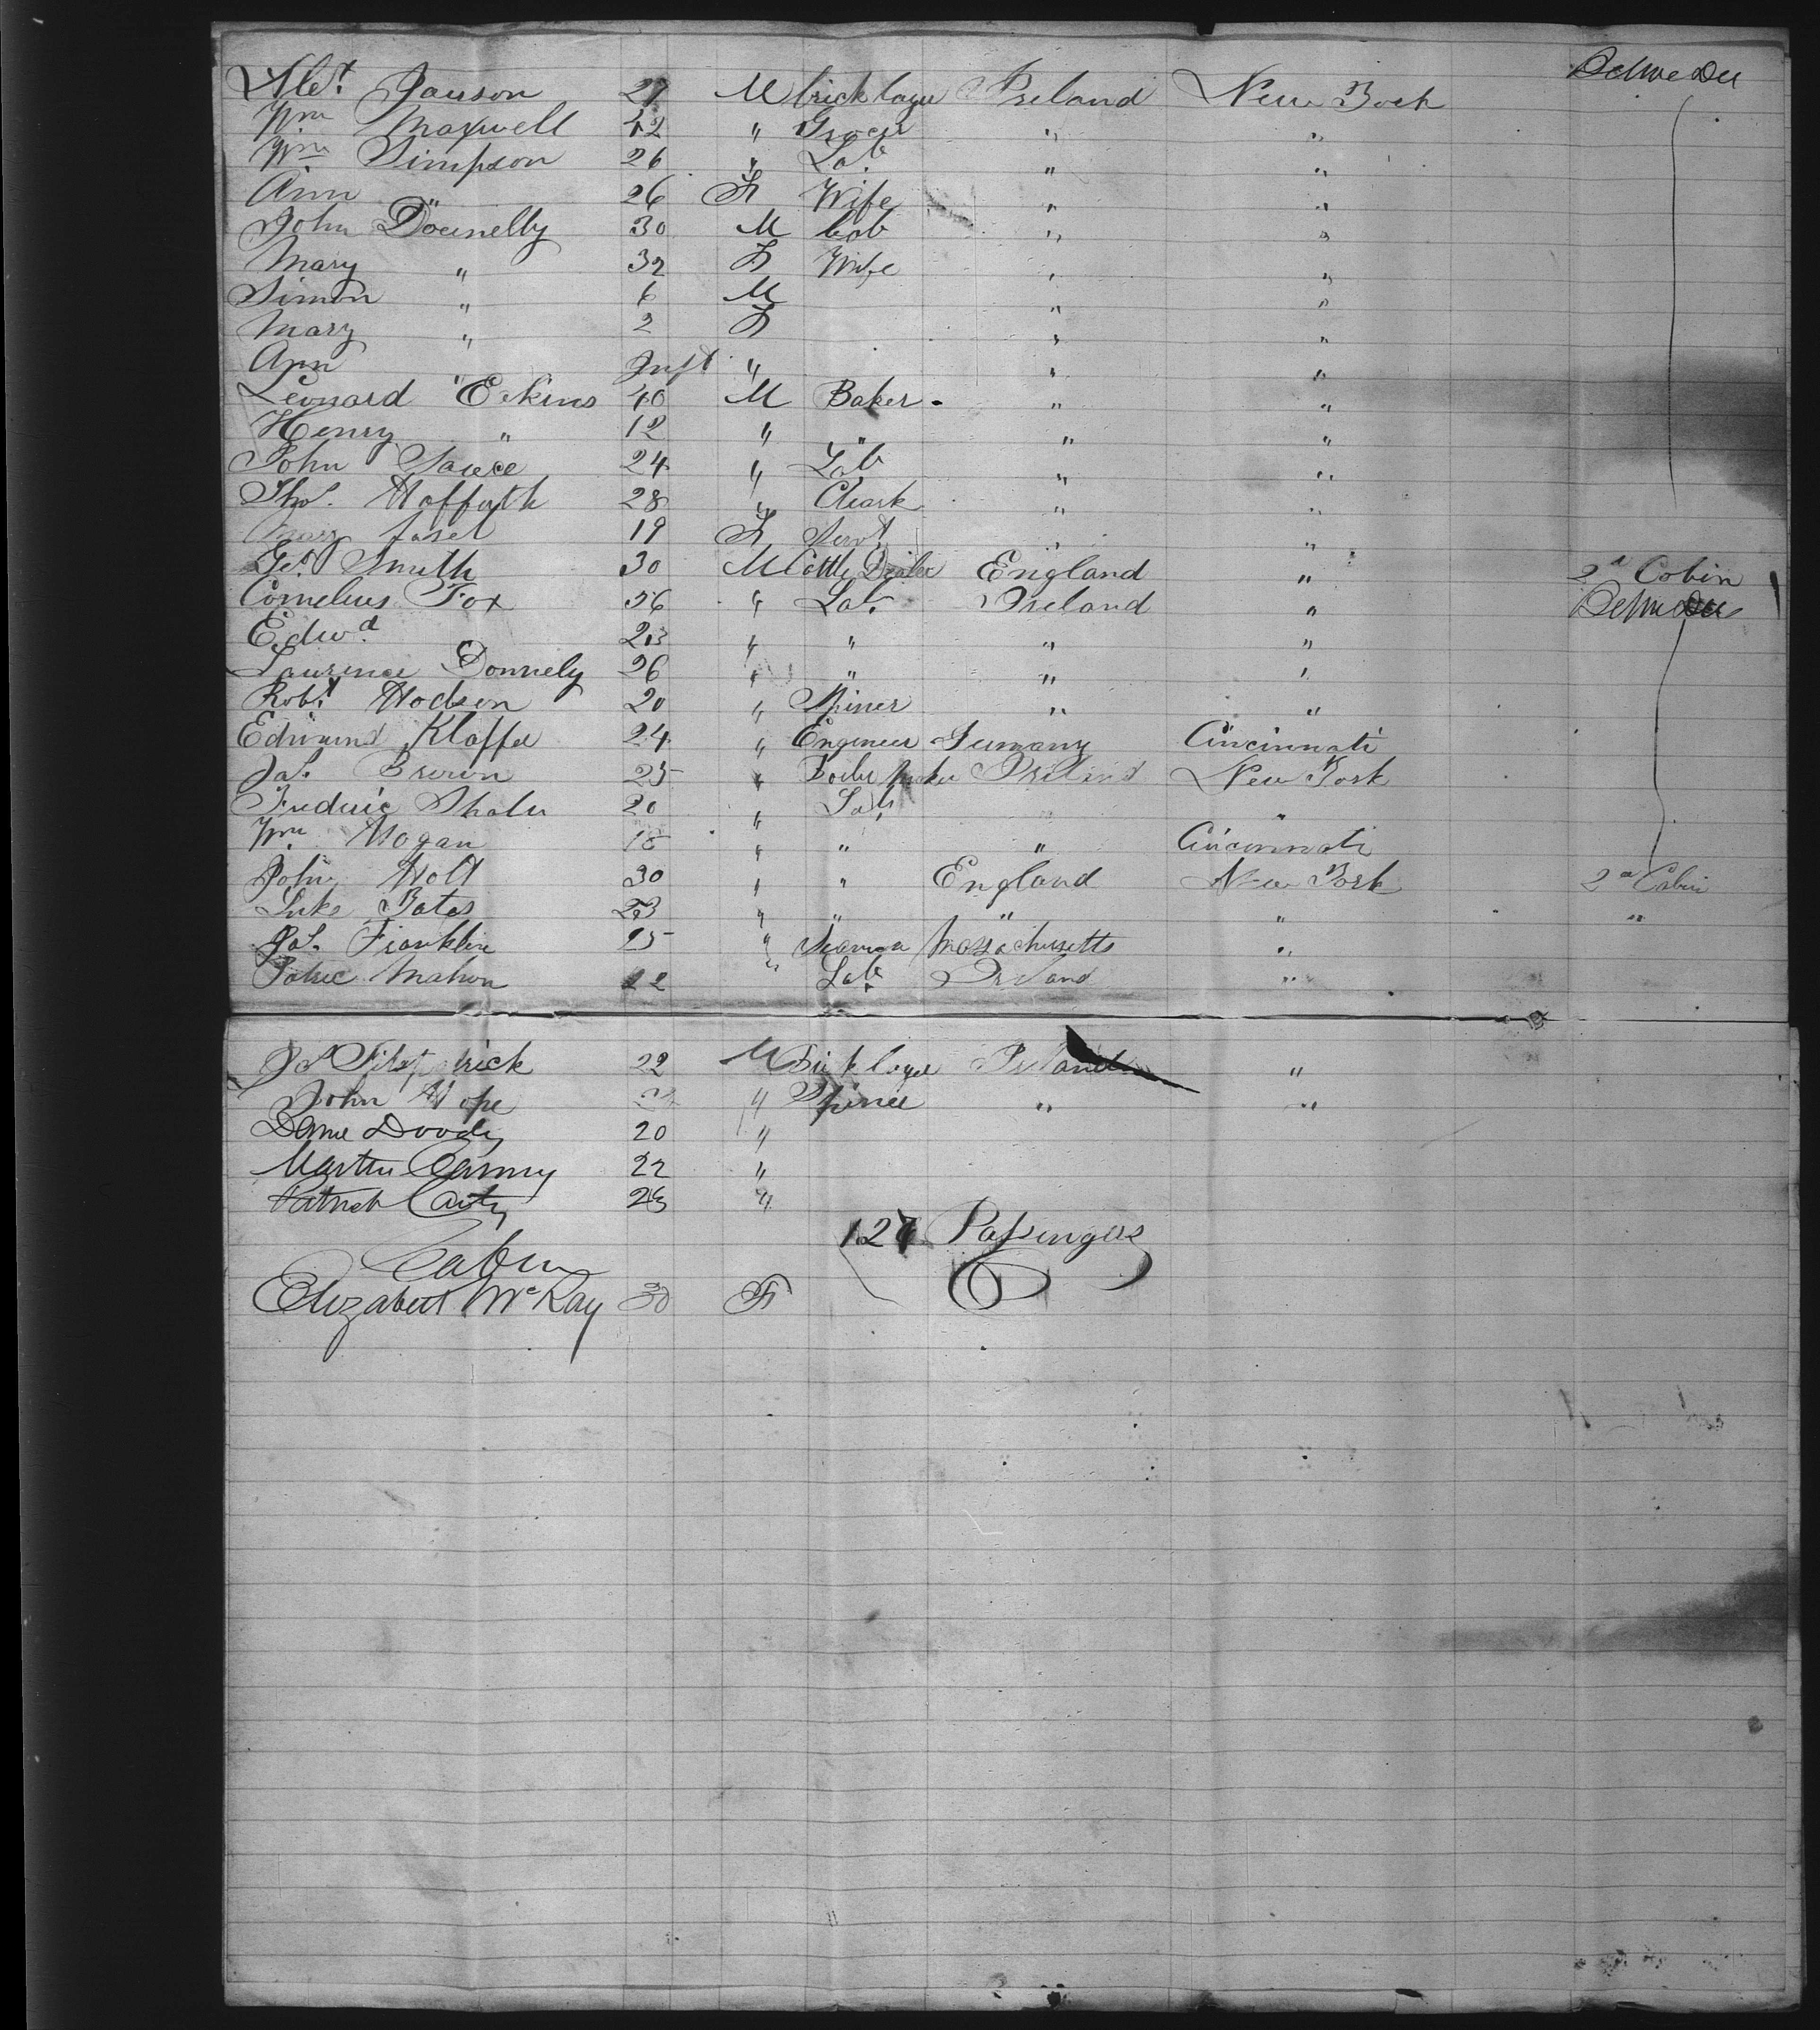 Alex. Pauson 27 M bricklayer Ireland New York Betwe Dec
Wm Maxwell 42 " Grocer " "
Wm Simpson 26 " Lab. " "
Ann " 26 F Wife " "
John Donnelly 30 M Lab " "
Mary " 32 F Wife " "
Simon " 6 M " "
Mary " 2 F " "
Ann " Inft " " "
Leonard Eekins 40 M Baker " "
Henry " 12 " " " "
John 24 " Lab " "
Thos. 28 " Cleark " "
Mary 19 F Servt " "
Geo. Smith 30 M Cattle Dealer England " 2d Cabin
Cornelius Fox 56 " Lab. Ireland " Betwe Dec
Edwd 23 " " " "
Laurence Donnely 26 " " " "
Robt Hodson 20 " Spiner " "
Edmund Klaffer 24 " Engeneer Germany Cincinnati
Jas. Brown 25 " Boiler maker Ireland New York
Frederic 20 " Lab. "
Wm. Hogan 18 " " " Cincinnati
John Holt 30 " " England New York 2d Cabin
Luke Bates 23 " " " " "
Jas. Franklin 25 " Seaman Massachusetts "
Patric Mahon 22 " Lab. Ireland "
Js Fitzpatrick 22 M Bricklayer Ireland "
John Hope " Spiner " "
Doody 20 "
Martin 22 "
Patrick Carty 23 "
127 Passengers
Cabin
Elizabeth McKay 30 F